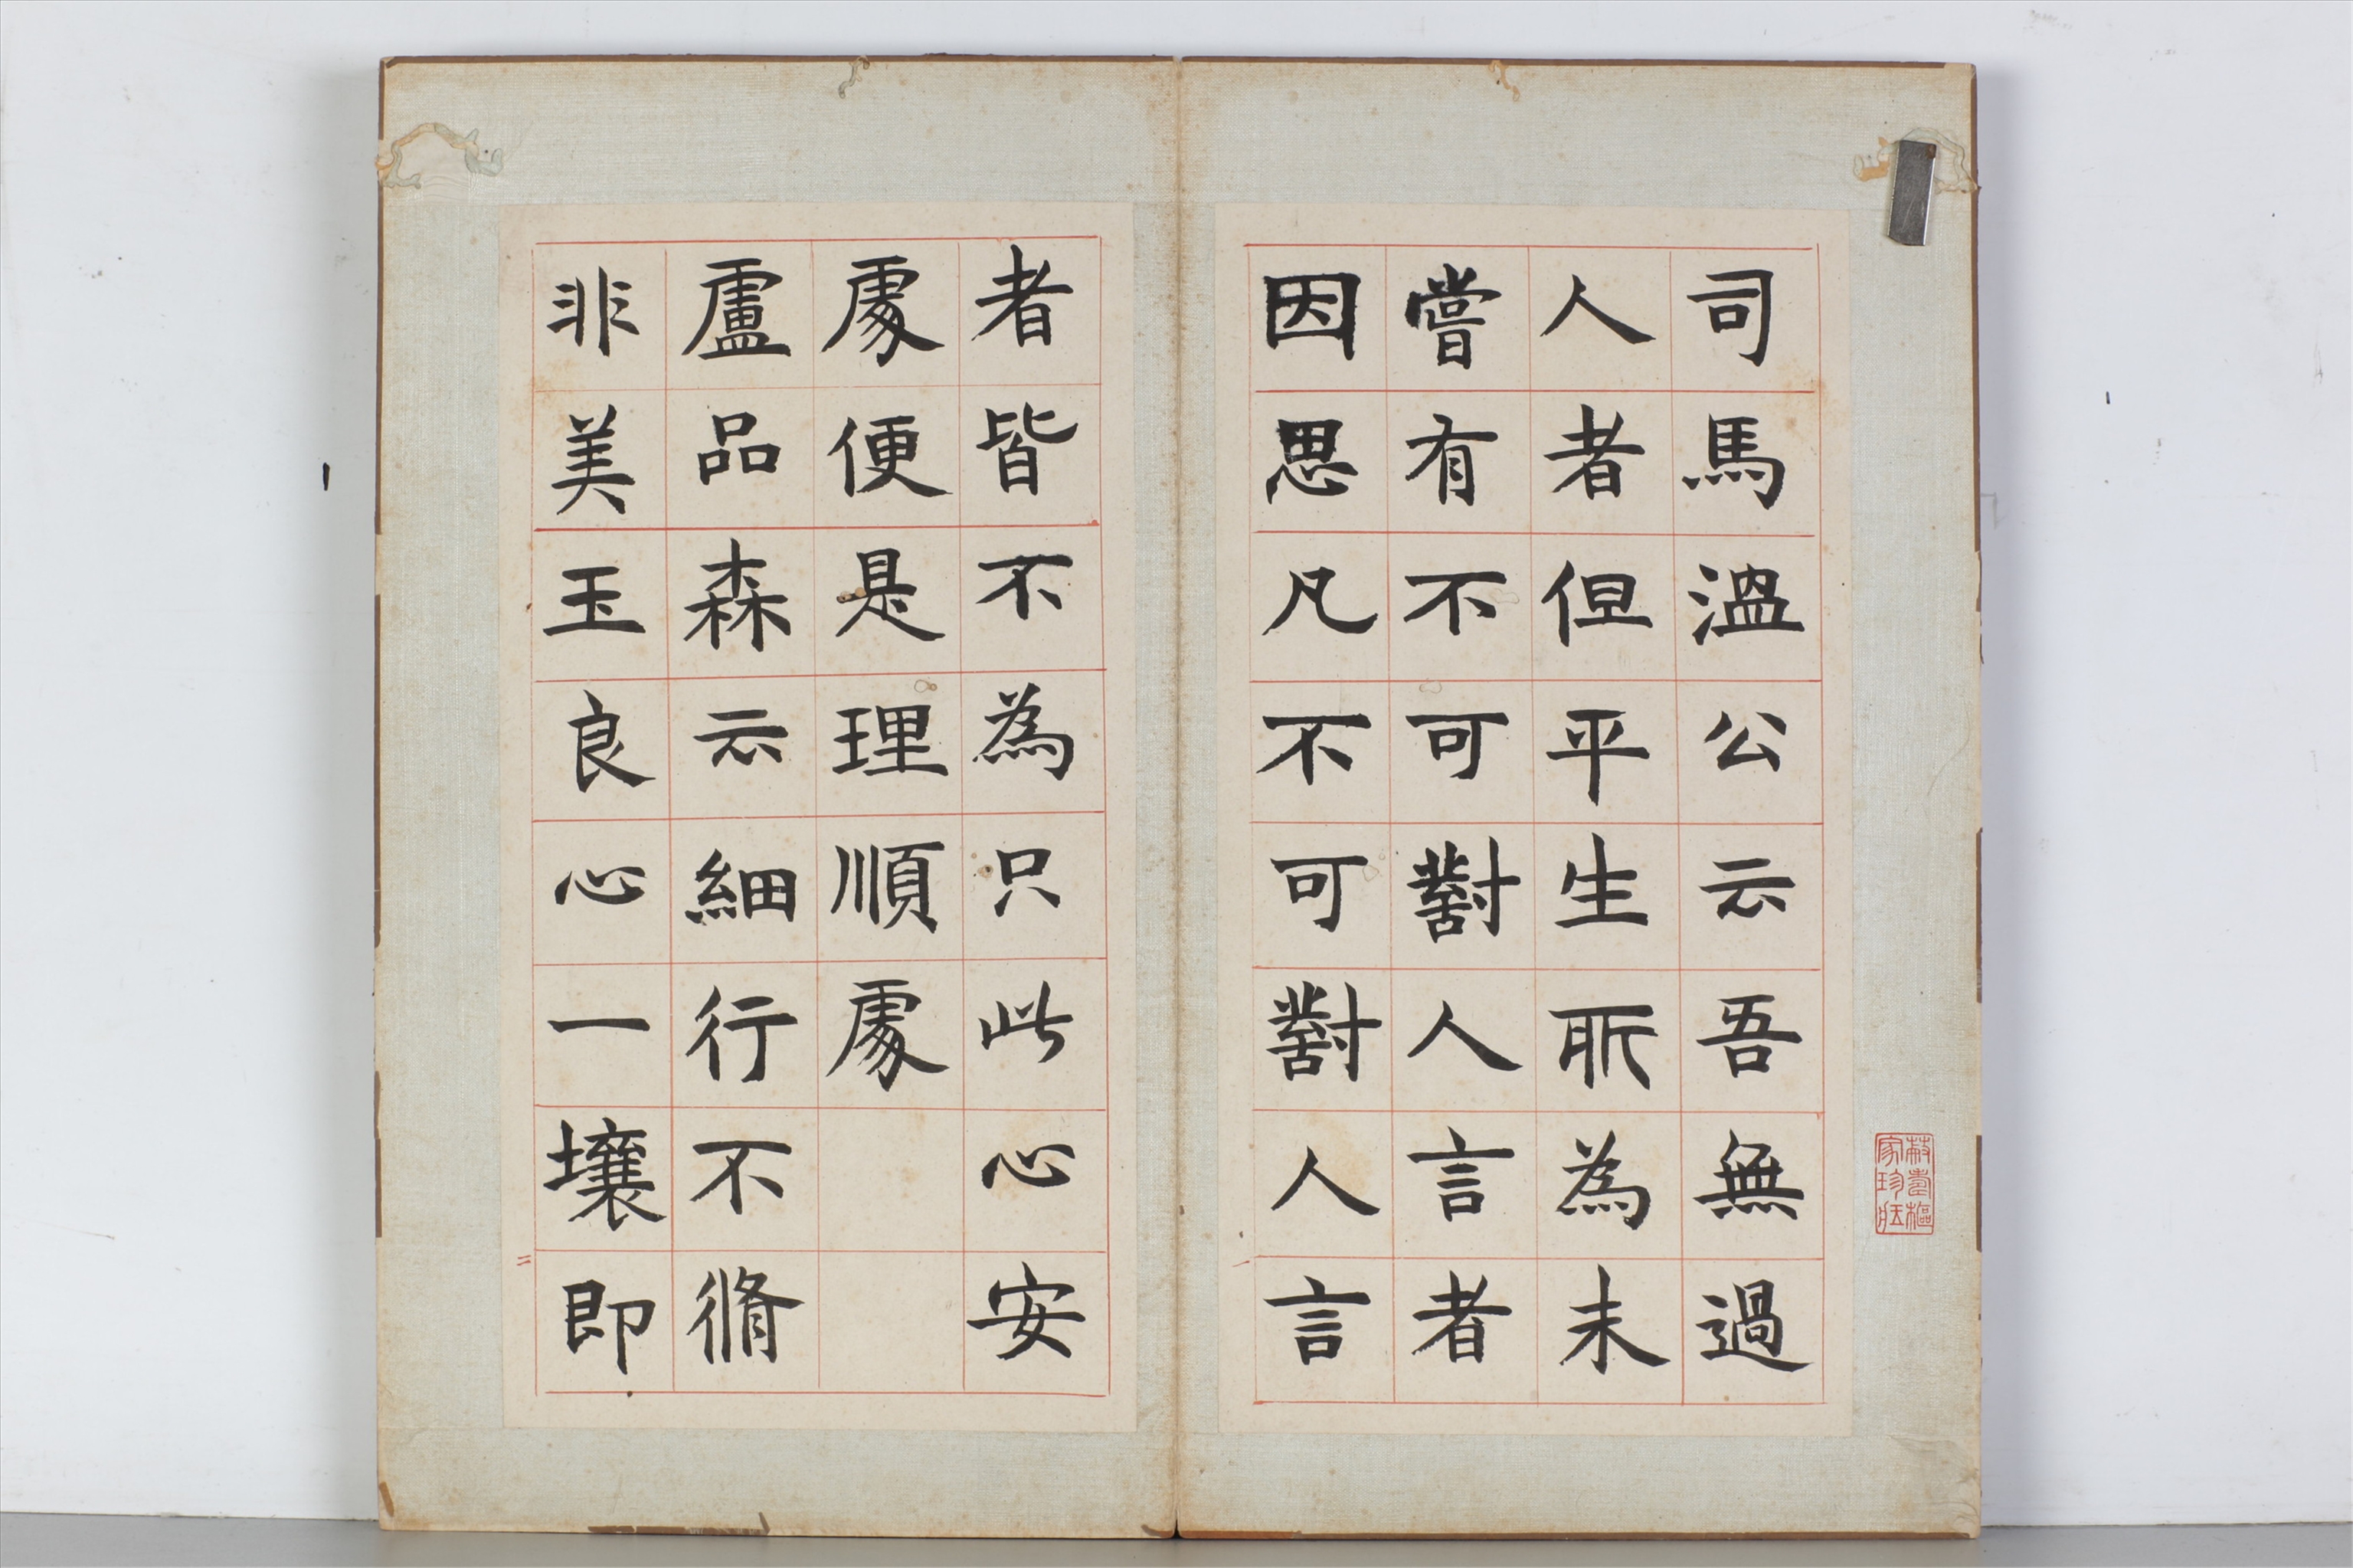 司馬溫公云吾無過
人者但平生所為未
嘗有不可對人言者
因思凡不可對人言
者皆不為只此心安
處便是理順處
盧品森云細行不脩
非美玉良心一壞即
一
二